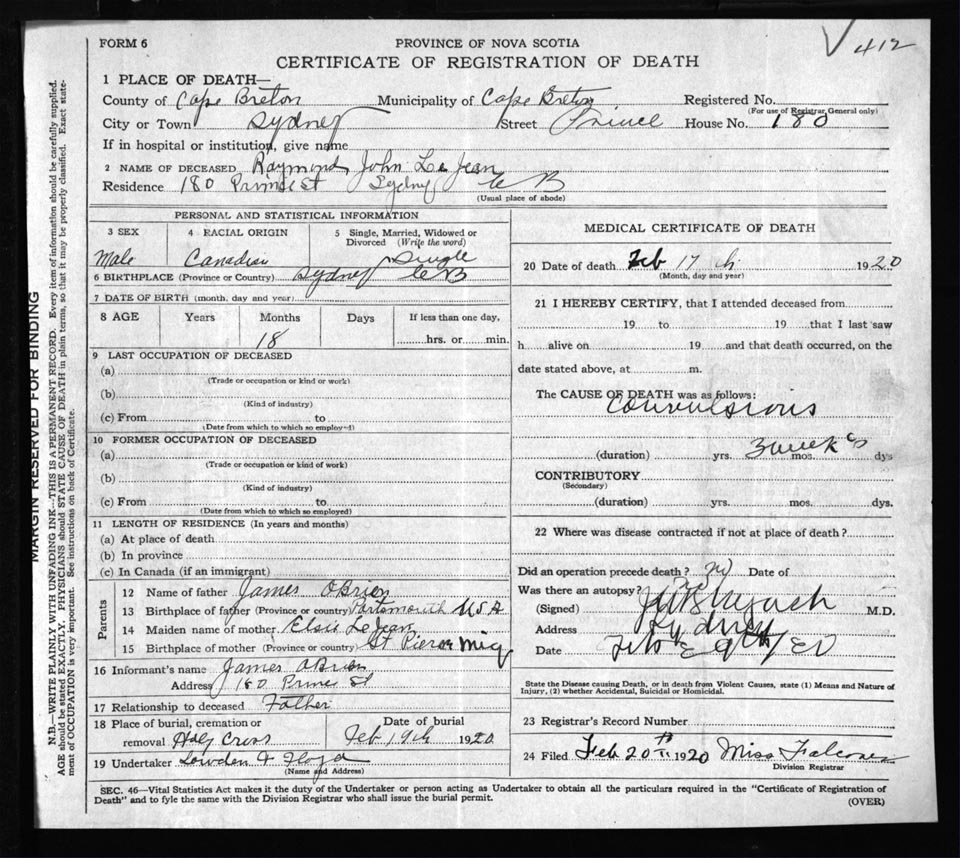 412
FORM 6
PROVINCE OF NOVA SCOTIA
CERTIFICATE OF REGISTRATION OF DEATH
MARGIN RESERVED FOR BINDING
N.B.—WRITE PLAINLY WITH UNFADING INK—THIS IS A PERMANENT RECORD. Every item of information should be carefully supplied.
AGE should be stated EXACTLY. PHYSICIANS should STATE CAUSE OF DEATH in plain terms, so that it may be properly classified. Exact state-
ment of OCCUPATION is very important. See instructions on back of Certificate.
1 PLACE OF DEATH—
County of Cape Breton Municipality of Cape Breton Registered No.
(For use of Registrar General only)
City or Town Sydney Street Prince House No. 180
If in hospital or institution, give name
2 NAME OF DECEASED Raymond John Le Jean
Residence 180 Prince St Sydney C B
(Usual place of abode)
PERSONAL AND STATISTICAL INFORMATION
3 SEX 4 RACIAL ORIGIN 5 Single, Married, Widowed or
Divorced (Write the word)
Male Canadian Single
6 BIRTHPLACE (Province or Country) Sydney C B
7 DATE OF BIRTH (month, day and year)
8 AGE Years Months Days If less than one day,
18 hrs. or min.
9 LAST OCCUPATION OF DECEASED
(a)
(Trade or occupation or kind or work)
(b)
(Kind of industry)
(c) From to
(Date from which to which so employed)
10 FORMER OCCUPATION OF DECEASED
(a)
(Trade or occupation or kind of work)
(b)
(Kind of industry)
(c) From to
(Date from which to which so employed)
11 LENGTH OF RESIDENCE (In years and months)
(a) At place of death
(b) In province
(c) In Canada (if an immigrant)
Parents
12 Name of father James OBrien
13 Birthplace of father (Province or country) Portsmouth U S A
14 Maiden name of mother Elsie Le Jean
15 Birthplace of mother (Province or country) St Pierre Miq
16 Informant's name James OBrien
Address 180 Prince St
17 Relationship to deceased Father
18 Place of burial, cremation or Date of burial
removal Holy Cross Feb 19th 1920
19 Undertaker Lowden & Floyd
(Name and Address)
MEDICAL CERTIFICATE OF DEATH
20 Date of death Feb 17 th 1920
(Month, day and year)
21 I HEREBY CERTIFY, that I attended deceased from
19 to 19 that I last saw
h alive on 19 and that death occurred, on the
date stated above, at m.
The CAUSE OF DEATH was as follows:
Convulsions
(duration) yrs. 3 weeks mos. dys
CONTRIBUTORY
(Secondary)
(duration) yrs. mos. dys.
22 Where was disease contracted if not at place of death?
Did an operation precede death? no Date of
Was there an autopsy? no
(Signed) M.D.
Address Sydney
Date Feb
State the Disease causing Death, or in death from Violent Causes, state (1) Means and Nature of
Injury, (2) whether Accidental, Suicidal or Homicidal.
23 Registrar's Record Number
24 Filed Feb 20th 1920 Miss
Division Registrar
SEC. 46—Vital Statistics Act makes it the duty of the Undertaker or person acting as Undertaker to obtain all the particulars required in the "Certificate of Registration of
Death" and to fyle the same with the Division Registrar who shall issue the burial permit.
(OVER)